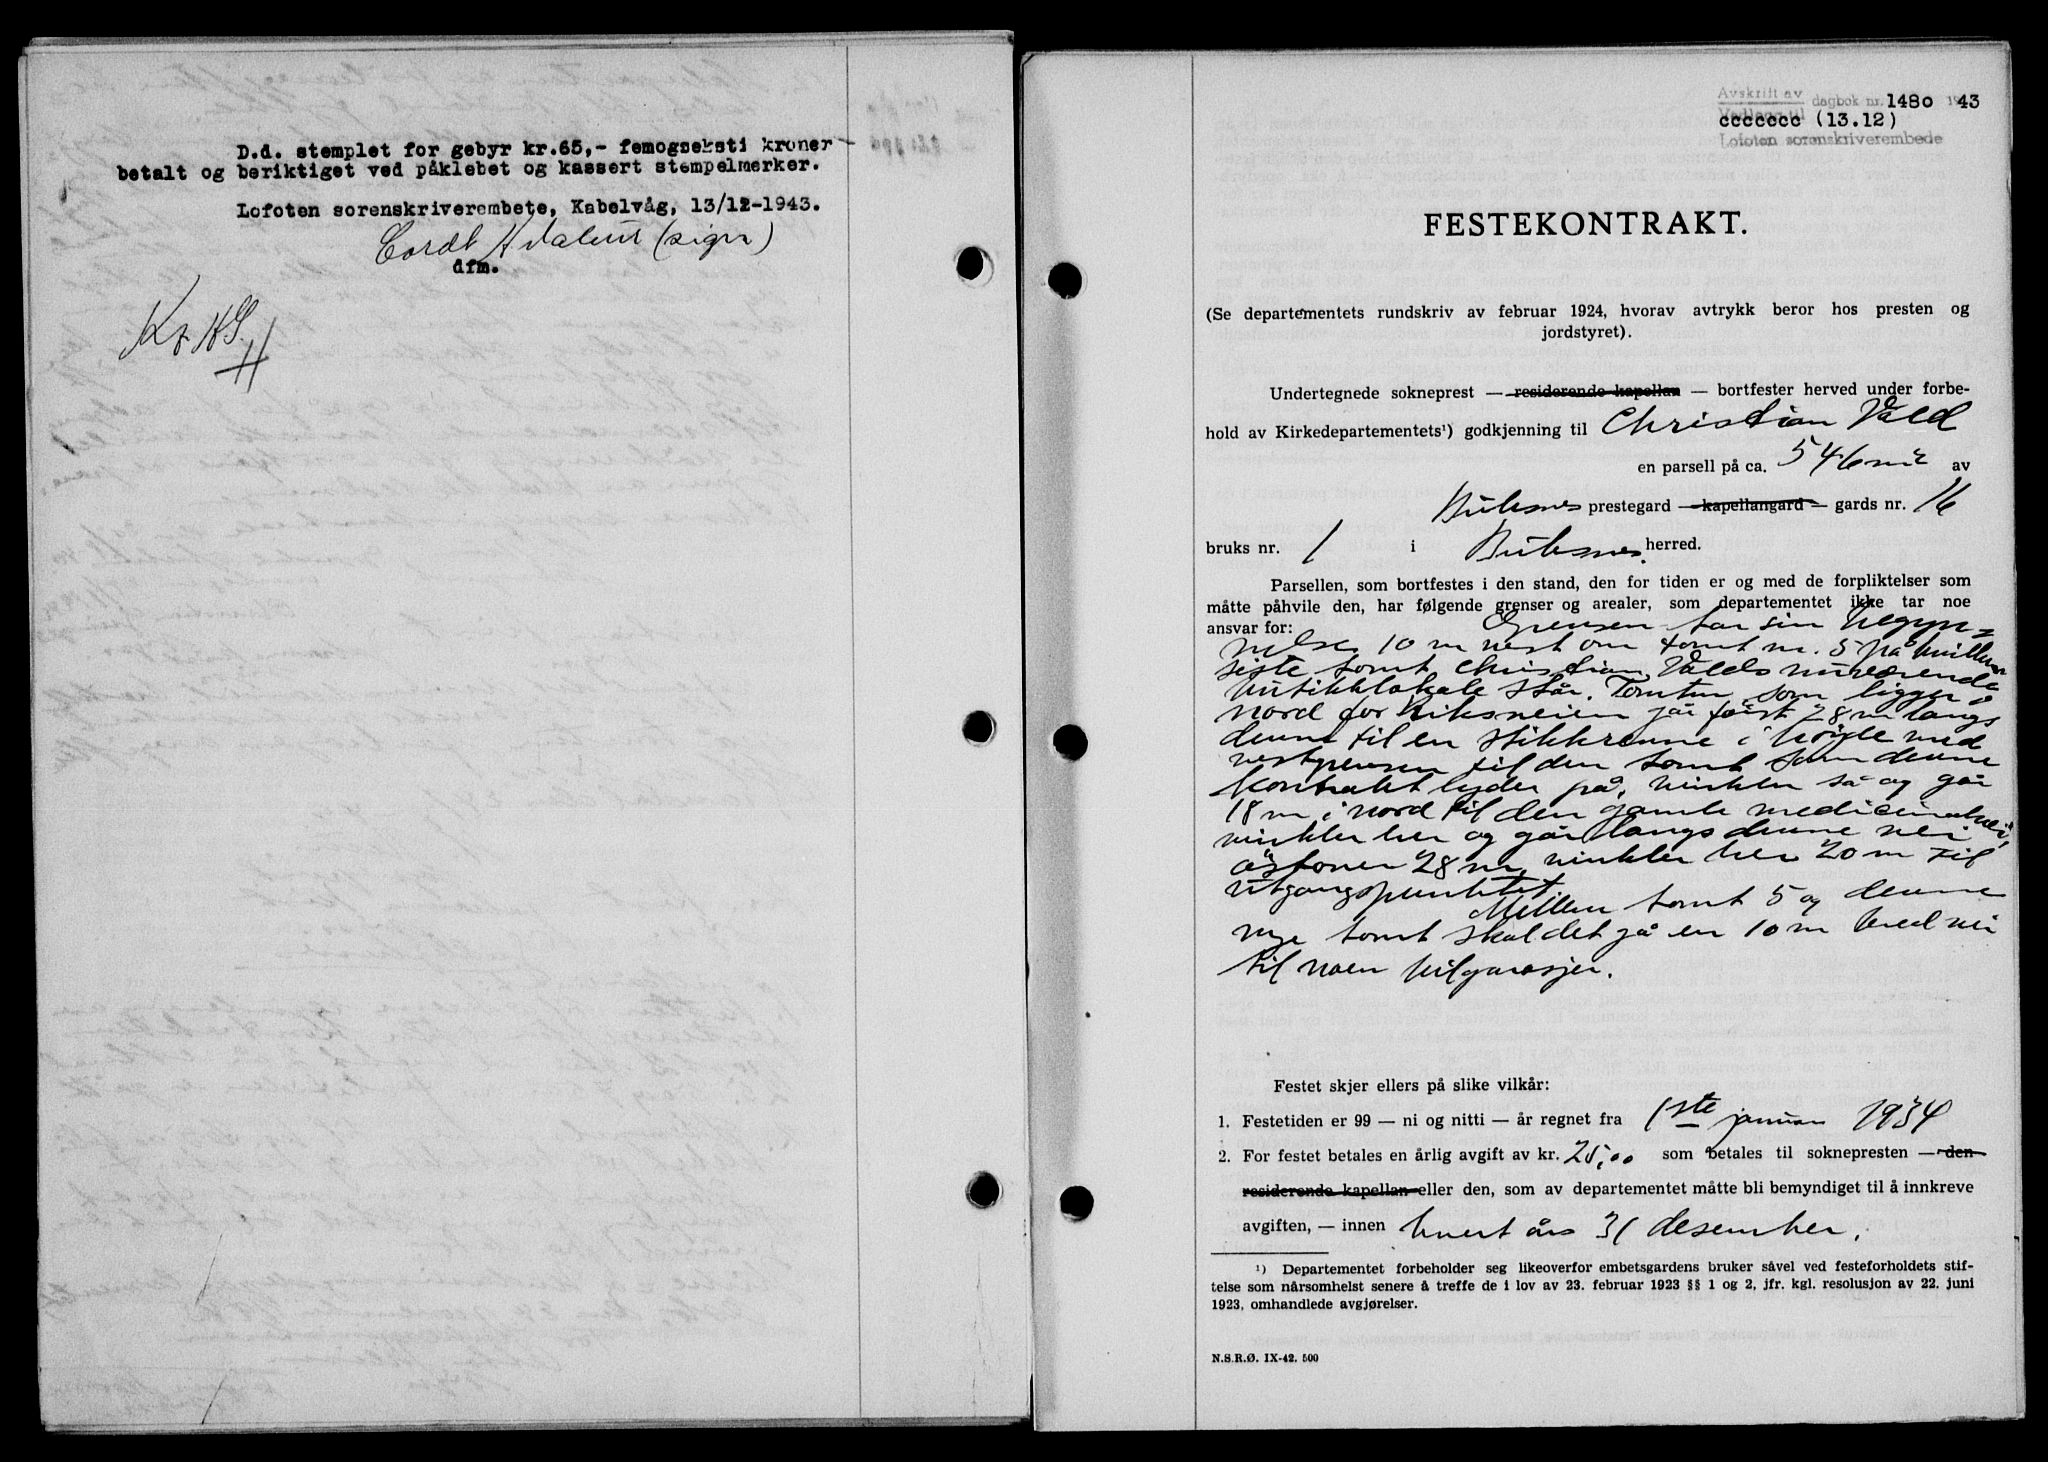 D.d. stemplet for gebyr kr.65,- femogseksti kroner
betalt og beriktiget ved påklebet og kassert stempelmerker.
Lofoten sorenskriverembete, Kabelvåg, 13/12-1943.
Cordt Adaleur (sign)
dfm.
Avskrift av
Vedlegg til dagbok nr. 1480 1943
ccccccc (13.12)
Lofoten sorenskriverembede
FESTEKONTRAKT.
(Se departementets rundskriv av februar 1924, hvorav avtrykk beror hos presten og
jordstyret).
Undertegnede sokneprest — residerende kapellan — bortfester herved under forbe-
hold av Kirkedepartementets¹) godkjenning til Christian Vold
en parsell på ca. 546 m² av
Buksnes prestegard — kapellangard — gards nr. 16
bruks nr. 1 i Buksnes herred.
Parsellen, som bortfestes i den stand, den for tiden er og med de forpliktelser som
måtte påhvile den, har følgende grenser og arealer, som departementet ikke tar noe
ansvar for: Grensen tar sin begyn=
nelse 10 m vest om tomt nr. 5 på hvilken
siste tomt Christian Volds nuværende
butikklokale står. Tomten som ligger i
nord for Riksveien går først 28 m langs
denne til en stikkrenne i høide med
vestgrensen til den tomt som denne
kontrakt lyder på, vinkler så og går
18 m i nord til den gamle
vinkler her og går langs denne vei
østover 28 m, vinkler her 20 m til
utgangspunktet.
Mellem tomt 5 og denne
nye tomt skal det gå en 10 m bred vei
til noen bilgarasjer.
Festet skjer ellers på slike vilkår:
1. Festetiden er 99 — ni og nitti — år regnet fra 1ste januar 1934
2. For festet betales en årlig avgift av kr. 25,00 som betales til soknepresten — den
residerende kapellan eller den, som av departementet måtte bli bemyndiget til å innkreve
avgiften, — innen hvert års 31 desember.
¹) Departementet forbeholder seg likeoverfor embetsgardens bruker såvel ved festeforholdets stif-
telse som nårsomhelst senere å treffe de i lov av 23. februar 1923 §§ 1 og 2, jfr. kgl. resolusjon av 22. juni
1923, omhandlede avgjørelser.
N.S.R.Ø. IX-42. 500